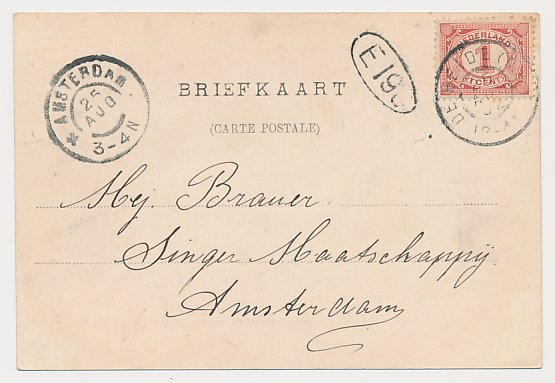 AMSTERDAM
25
AUG
3-4N
E19
NEDERLAND
1
CENT
BRIEFKAART
(CARTE POSTALE)
Mej. Brauer
Singer Maatschappij
Amsterdam